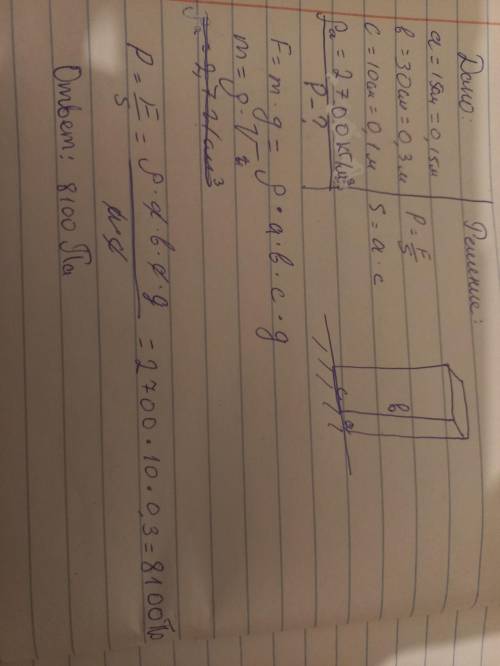 Дано:
a = 15см = 0,15м
в = 30см = 0,3м
c = 10см = 0,1м
ρa = 2700кг/м³
P - ?
Решение:
P = F/S
S = a · c
в
c
a
F = m · g = ρ · a · в · c · g
m = ρ · V
P = F/S = ρ · a · в · c · g / a c = 2700 · 10 · 0,3 = 8100Па
Ответ: 8100 Па